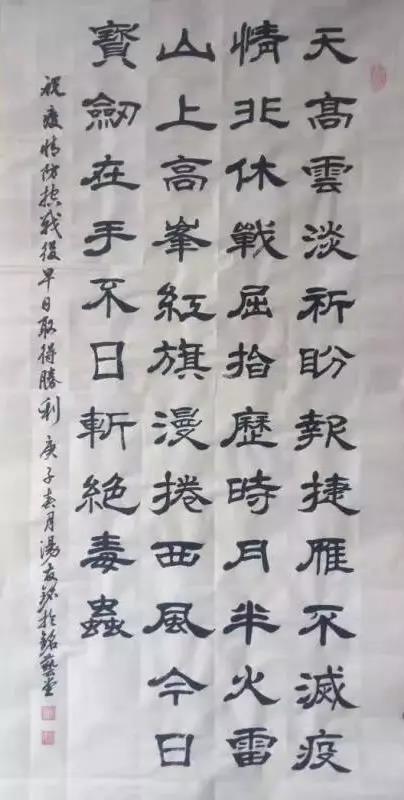 天髙雲淡祈盼報捷雁不滅疫
情非休戰屈指歷時月半火雷
山上高峯紅旗漫捲西風今日
寶劍在手不日斬絕毒蟲
祝疫情防控戰役早日取得勝利 庚子春月湯友於銘藝堂